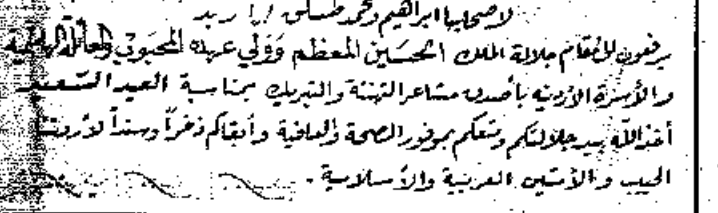 لاصحابها ابراهيم ومحمد / اربد
يرفعون لمقام جلالة الملك الحسين المعظم وولي عهده المحبوب والعائلة الهاشمية
والأسرة الأردنية بأصدق مشاعر التهنئة والتبريك بمناسبة العيد السعيد
أخذ الله بيد جلالتكم ومتعكم بموفور الصحة والعافية وأبقاكم ذخراً وسنداً لأردننا
الحبيب والأمتين العربية والأسلامية .